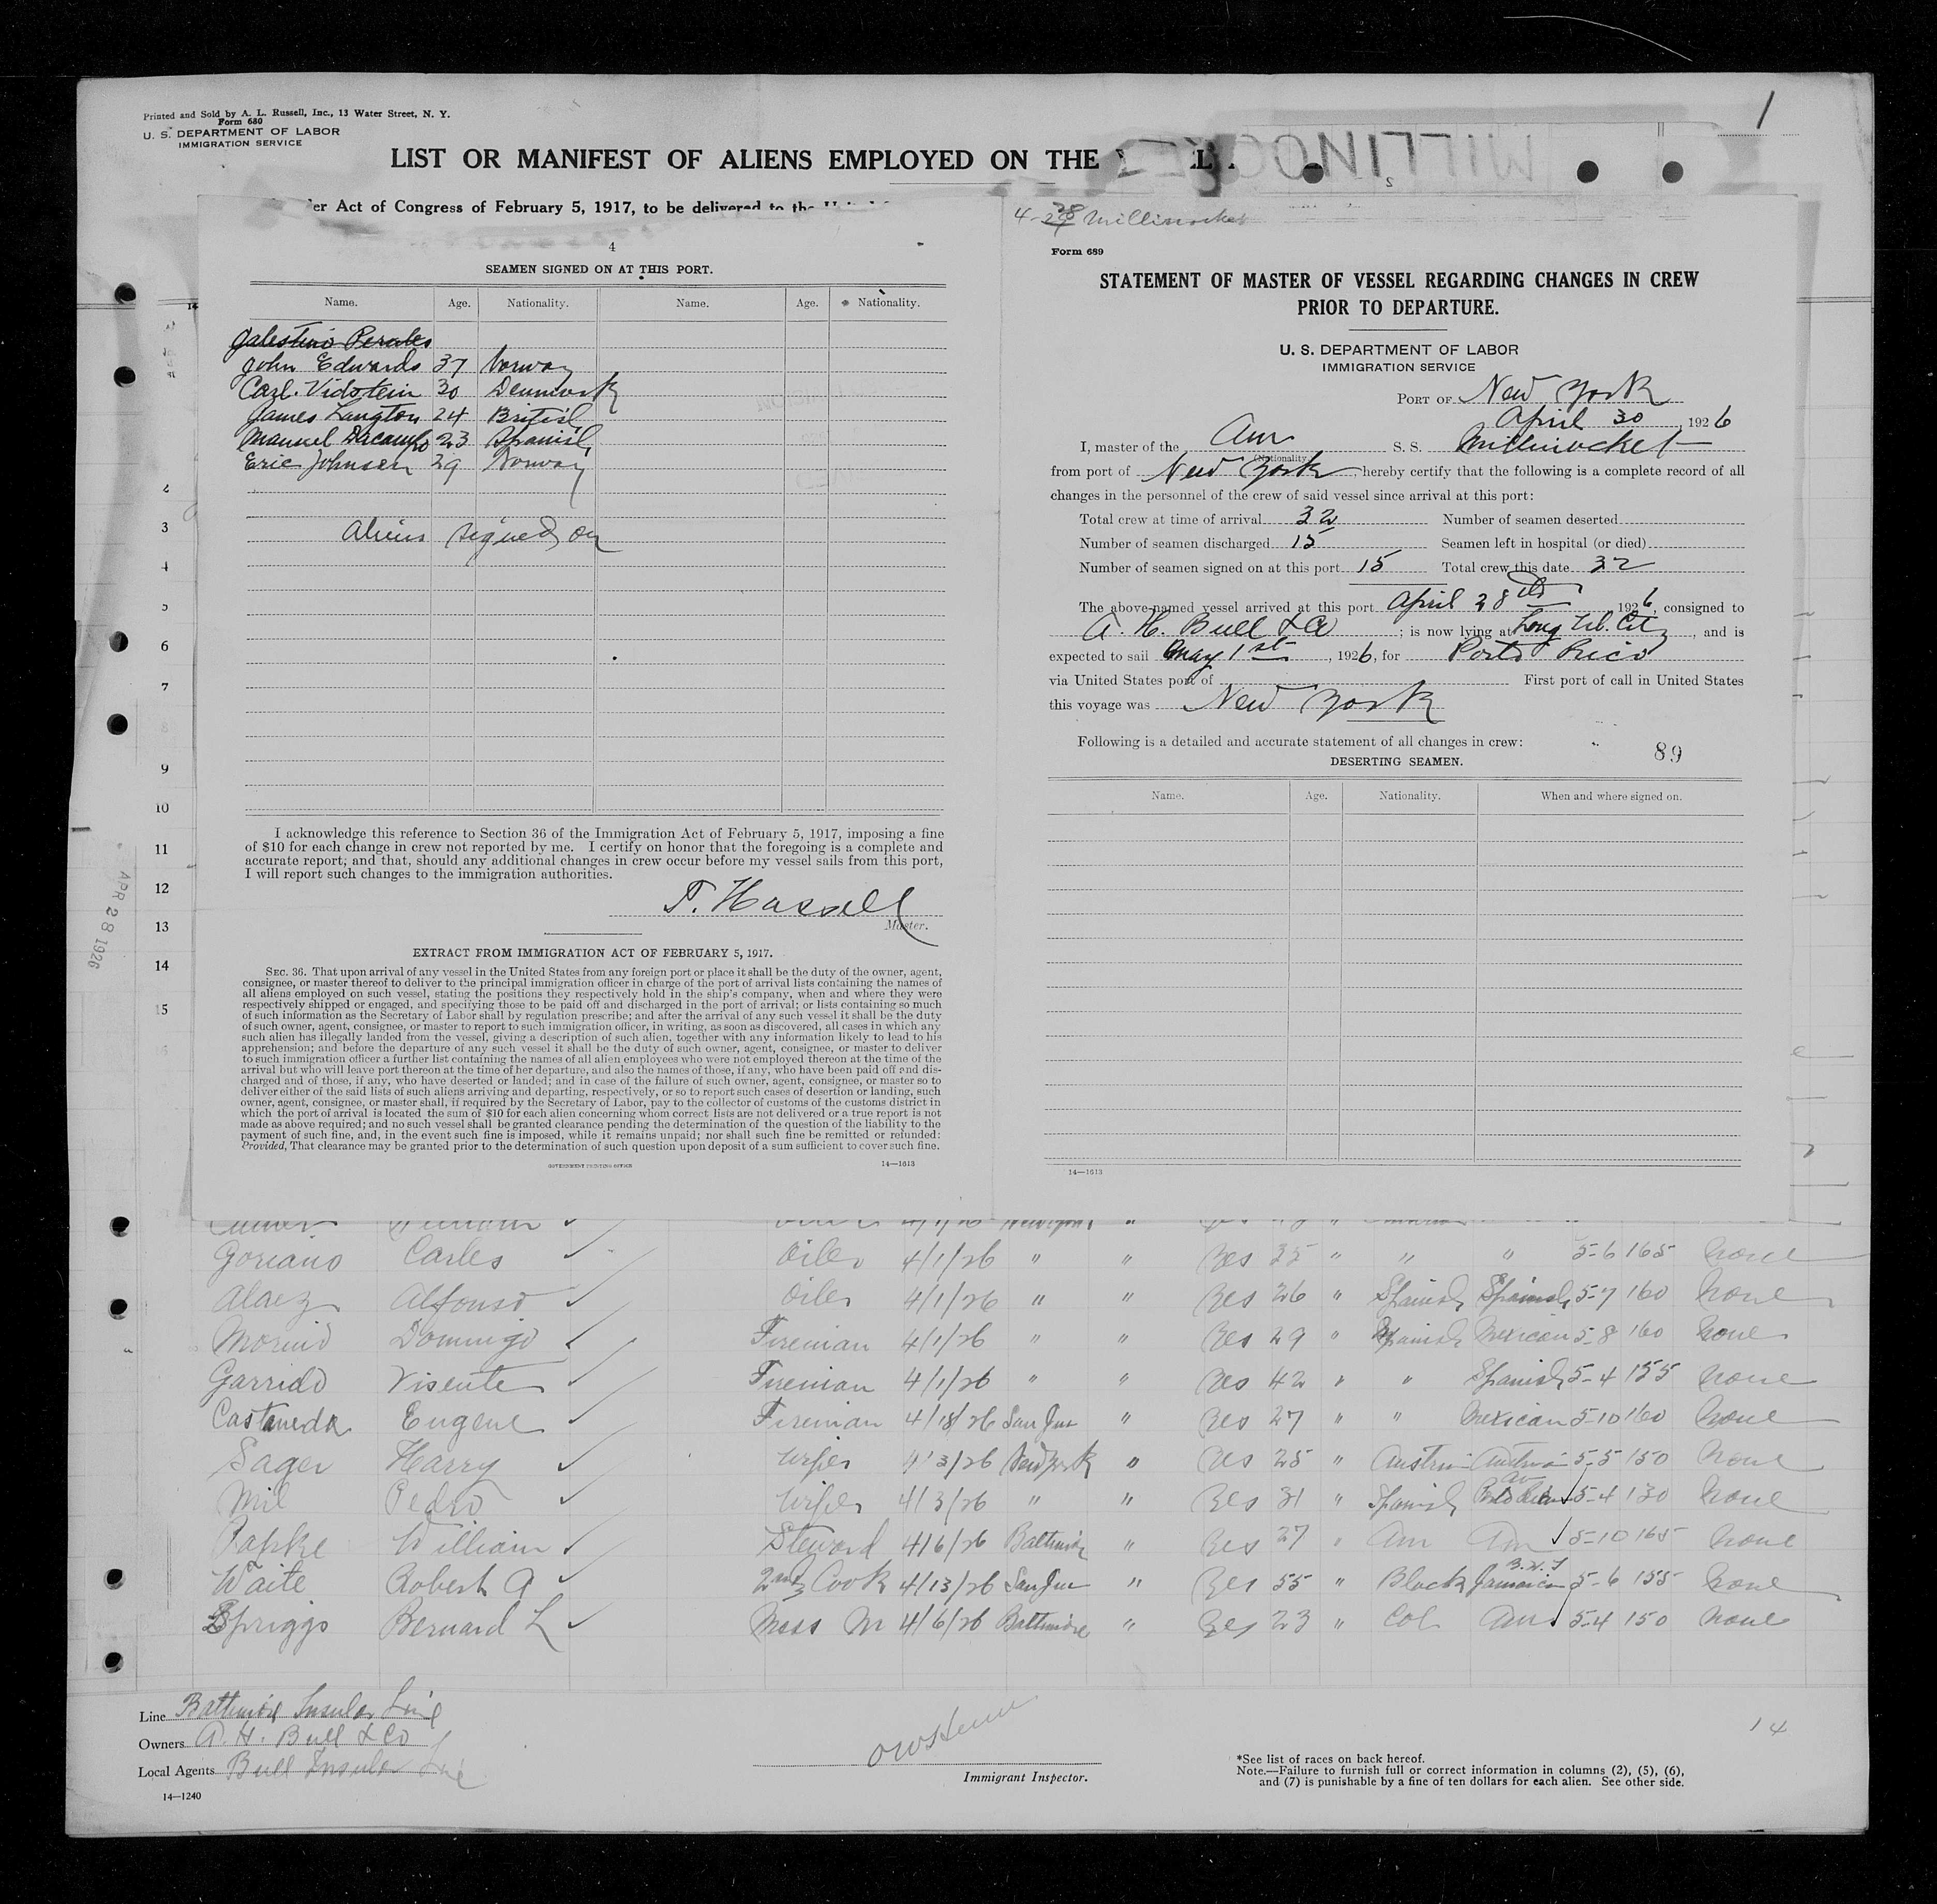 1
Printed and Sold by A. L. Russell, Inc., 13 Water Street, N. Y.
Form 680
U. S. DEPARTMENT OF LABOR
IMMIGRATION SERVICE
LIST OR MANIFEST OF ALIENS EMPLOYED ON THE
MILLINOCKET
er Act of Congress of February 5, 1917, to be delivered to the
4
SEAMEN SIGNED ON AT THIS PORT.
Name. Age. Nationality. Name. Age. Nationality.
John Edwards 37 Norway
Carl. Vidstein 30 Denmark
James Langton 24 British
Manuel Dacampo 23 Spanish
Eric Johnsen 29 Norway
Aliens signed on
3
4
5
6
7
8
9
10
11
12
13
14
15
APR 28 1926
I acknowledge this reference to Section 36 of the Immigration Act of February 5, 1917, imposing a fine
of $10 for each change in crew not reported by me. I certify on honor that the foregoing is a complete and
accurate report; and that, should any additional changes in crew occur before my vessel sails from this port,
I will report such changes to the immigration authorities.
T. Hassell
Master.
EXTRACT FROM IMMIGRATION ACT OF FEBRUARY 5, 1917.
SEC. 36. That upon arrival of any vessel in the United States from any foreign port or place it shall be the duty of the owner, agent,
consignee, or master thereof to deliver to the principal immigration officer in charge of the port of arrival lists containing the names of
all aliens employed on such vessel, stating the positions they respectively hold in the ship's company, when and where they were
respectively shipped or engaged, and specifying those to be paid off and discharged in the port of arrival; or lists containing so much
of such information as the Secretary of Labor shall by regulation prescribe; and after the arrival of any such vessel it shall be the duty
of such owner, agent, consignee, or master to report to such immigration officer, in writing, as soon as discovered, all cases in which any
such alien has illegally landed from the vessel, giving a description of such alien, together with any information likely to lead to his
apprehension; and before the departure of any such vessel it shall be the duty of such owner, agent, consignee, or master to deliver
to such immigration officer a further list containing the names of all alien employees who were not employed thereon at the time of the
arrival but who will leave port thereon at the time of her departure, and also the names of those, if any, who have been paid off and dis-
charged and of those, if any, who have deserted or landed; and in case of the failure of such owner, agent, consignee, or master so to
deliver either of the said lists of such aliens arriving and departing, respectively, or so to report such cases of desertion or landing, such
owner, agent, consignee, or master shall, if required by the Secretary of Labor, pay to the collector of customs of the customs district in
which the port of arrival is located the sum of $10 for each alien concerning whom correct lists are not delivered or a true report is not
made as above required; and no such vessel shall be granted clearance pending the determination of the question of the liability to the
payment of such fine, and, in the event such fine is imposed, while it remains unpaid; nor shall such fine be remitted or refunded:
Provided, That clearance may be granted prior to the determination of such question upon deposit of a sum sufficient to cover such fine.
GOVERNMENT PRINTING OFFICE 14—1613
Millinocket
Form 689
STATEMENT OF MASTER OF VESSEL REGARDING CHANGES IN CREW
PRIOR TO DEPARTURE.
U. S. DEPARTMENT OF LABOR
IMMIGRATION SERVICE
PORT OF New York
April 30 1926
I, master of the Am S. S. Millinocket
(Nationality.)
from port of New York, hereby certify that the following is a complete record of all
changes in the personnel of the crew of said vessel since arrival at this port:
Total crew at time of arrival 32 Number of seamen deserted
Number of seamen discharged 15 Seamen left in hospital (or died)
Number of seamen signed on at this port 15 Total crew this date 32
The above-named vessel arrived at this port April 28th 1926, consigned to
A. H. Bull & Co ; is now lying at Long Isl. City, and is
expected to sail May 1st, 1926, for Porto Rico
via United States port of First port of call in United States
this voyage was New York
Following is a detailed and accurate statement of all changes in crew:
89
DESERTING SEAMEN.
Name. Age. Nationality. When and where signed on.
14—1613
Goriano Carles Oiler 4/1/26 " " Yes 35 " " " 5-6 165 None
Alaez Alfonso Oiler 4/1/26 " " Yes 26 " Spanish Spanish 5-7 160 None
Morino Domingo Fireman 4/1/26 " " Yes 29 " Spanish Mexican 5-8 160 None
Garrido Visente Fireman 4/1/26 " " Yes 42 " " Spanish 5-4 155 None
Castaneda Eugene Fireman 4/18/26 San Jua " Yes 27 " " Mexican 5-10 160 None
Sager Harry Wiper 4/3/26 New York " Yes 25 " Austria Austria 5-5 150 None
Mil Pedro Wiper 4/3/26 " " Yes 31 " Spanish 5-4 130 None
Papke William Steward 4/6/26 Baltimore " Yes 27 " Am Am 5-10 165 None
Waite Robert A 2nd Cook 4/13/26 San Jua " Yes 55 " Black B.W.I Jamaica 5-6 155 None
Spriggs Bernard L Mess M 4/6/26 Baltimore " Yes 23 " Col Am 5-4 150 None
Line Baltimore Insular Line
Owners A. H. Bull & Co
Local Agents Bull Insular Line
14—1240
Immigrant Inspector.
14
*See list of races on back hereof.
Note.—Failure to furnish full or correct information in columns (2), (5), (6),
and (7) is punishable by a fine of ten dollars for each alien. See other side.